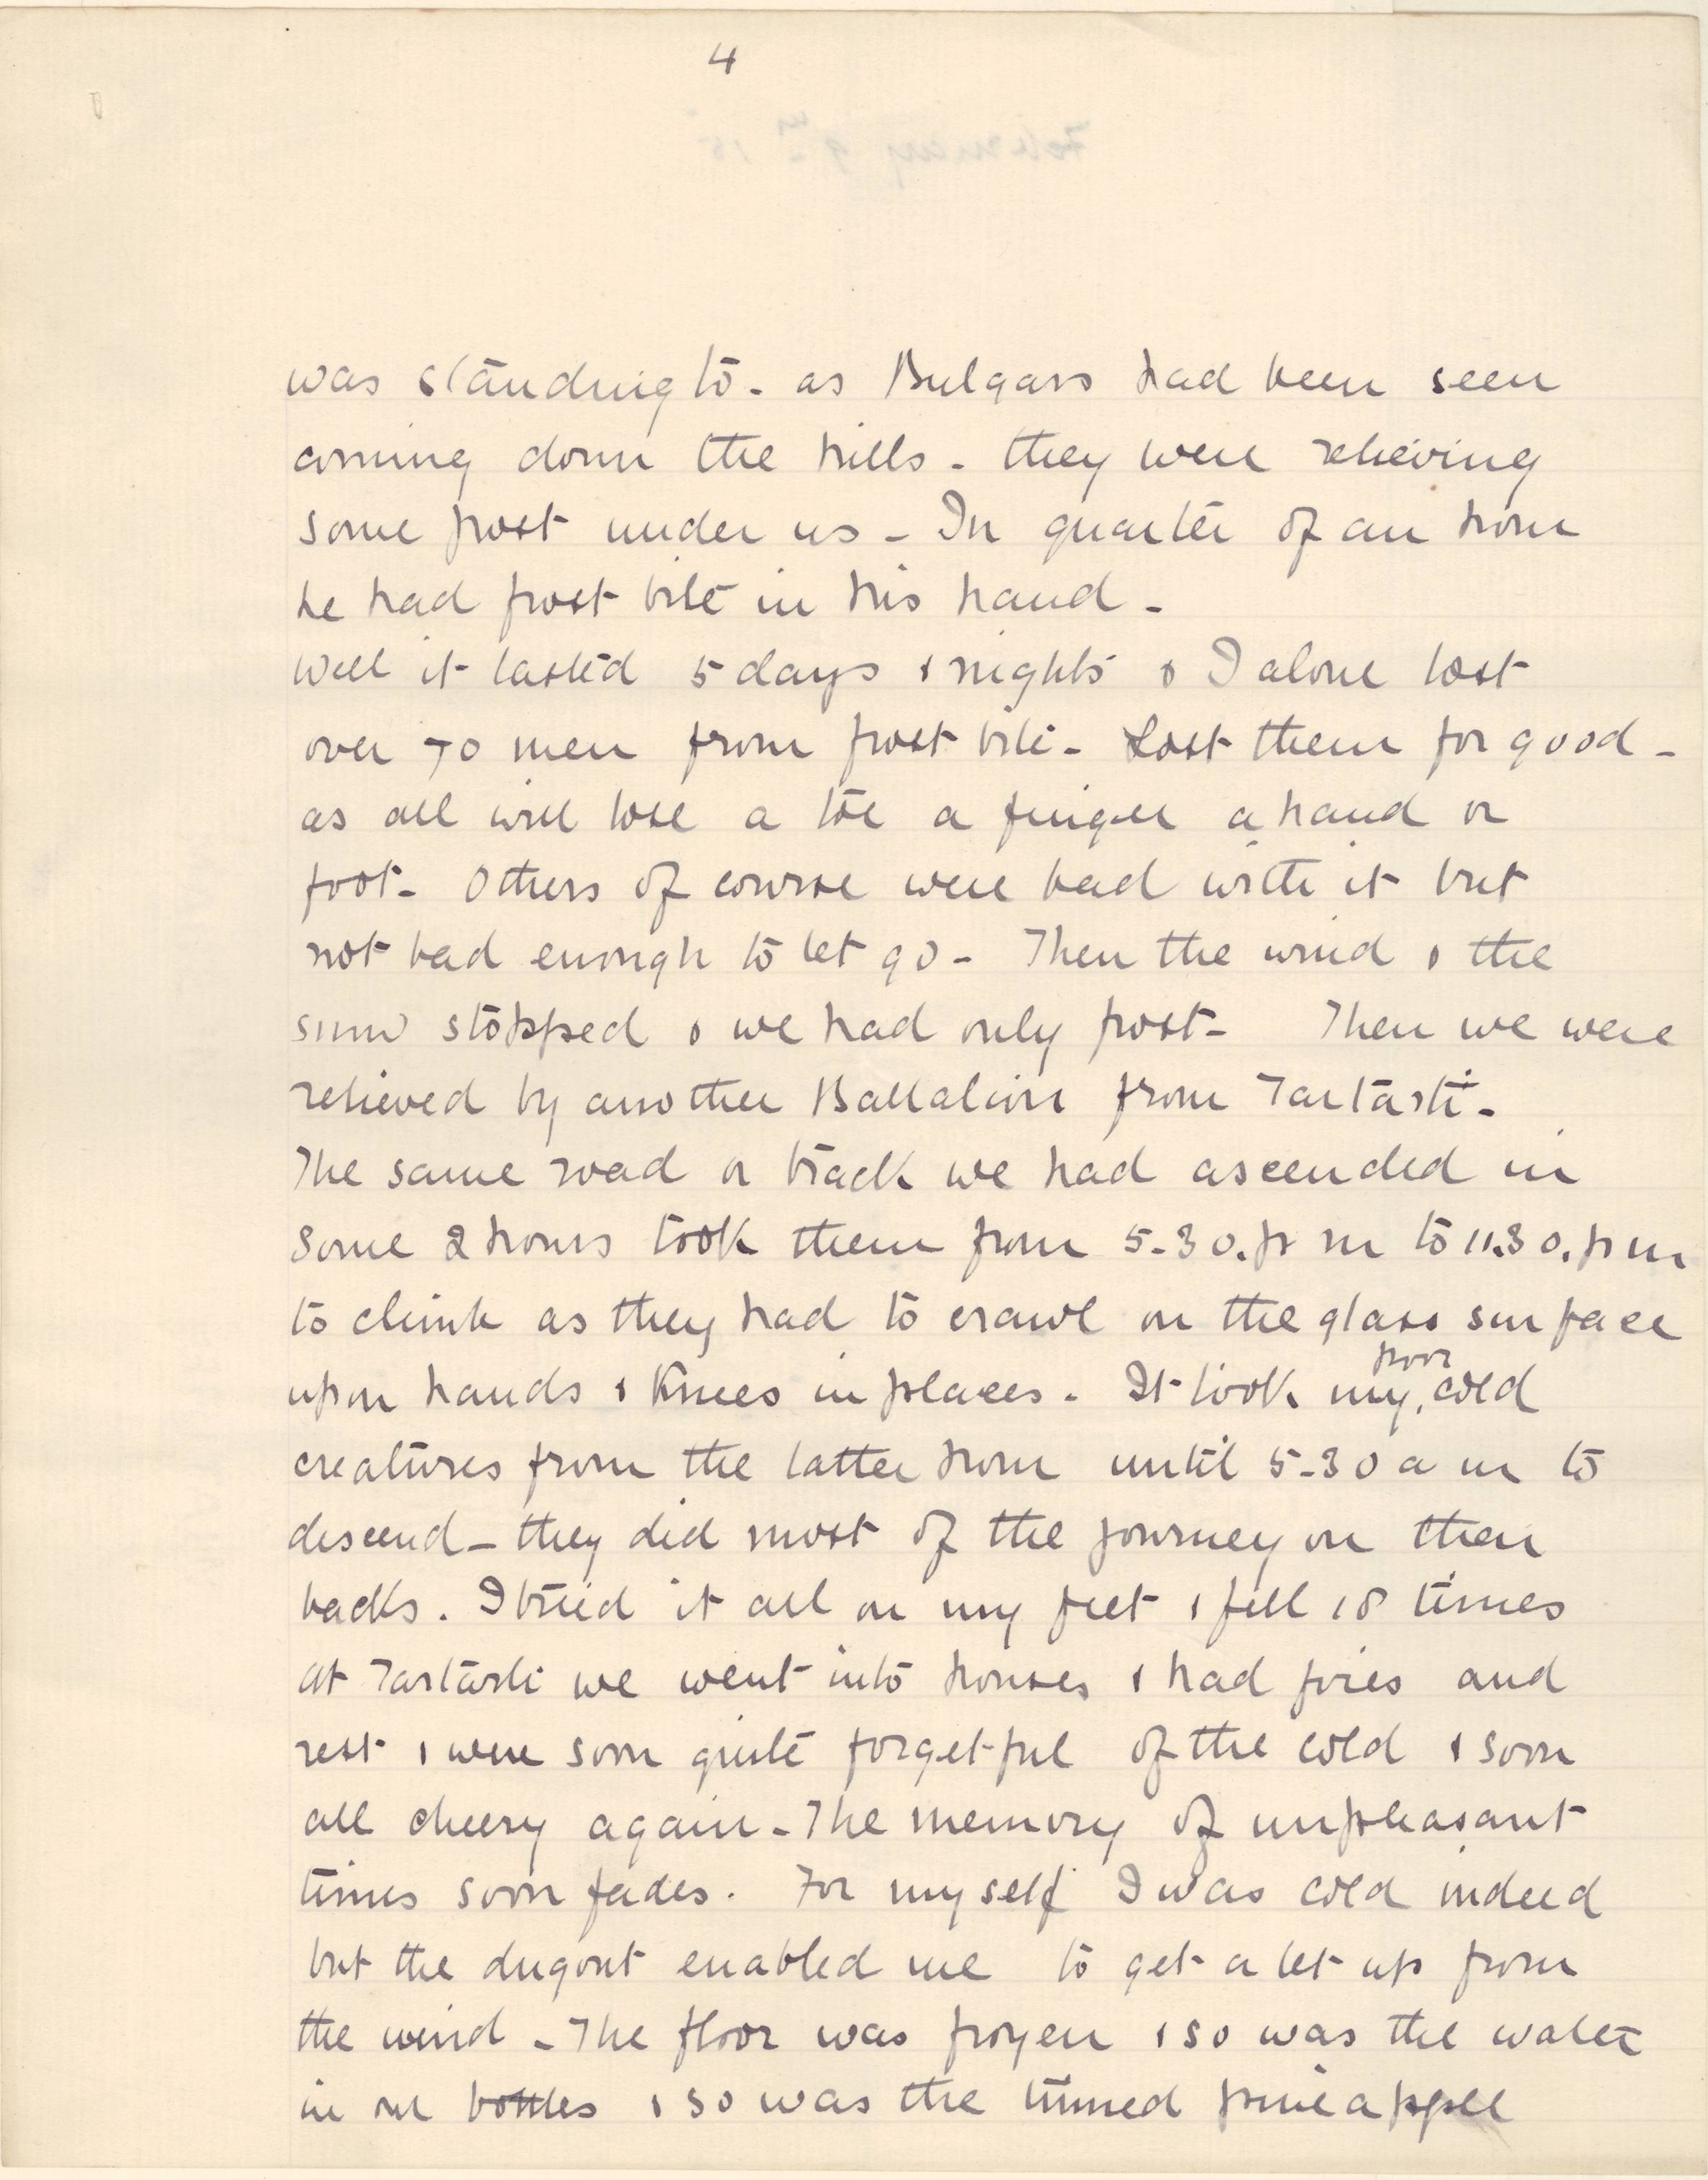 4
was standing to - as Bulgars had been seen
coming down the hills - they were relieving
some post under us - In quarter of an hour
he had frost bite in his hand -
Well it lasted 5 days & nights & I alone lost
over 70 men from frost bite - Lost them for good -
as all will lose a toe a finger a hand or
foot - Others of course were bad with it but
not bad enough to let go - Then the wind & the
snow stopped & we had only frost - Then we were
relieved by another Battalion from Tartarli -
The same road or track we had ascended in
some 2 hours took them from 5-30.pm to 11.30.pm
to climb as they had to crawl on the glass surface
upon hands & knees in places. It took my poor cold
creatures from the latter hour until 5-30 a m to
descend - they did most of the journey on their
backs. I tried it all on my feet & fell 18 times
at Tartarli we went into houses & had fires and
rest & were soon quite forgetful of the cold & soon
all cheery again - The memory of unpleasant
times soon fades. For myself I was cold indeed
but the dugout enabled me to get a let up from
the wind - The floor was frozen & so was the water
in our bottles & so was the tinned pineapple